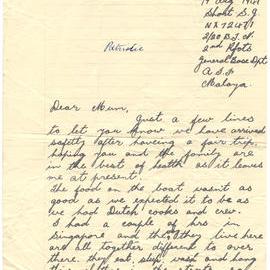 19 Aug 1941
Short S.J.
NX72471
2/20 B.T.N.
2nd Rfts
General Base Dpt
A.I.F
Malaya.
Dear Mum,
Just a few lines
to let you know we have arrived
safely after having a fair trip.
hoping you and the family are
in the best of health as it leaves
me at present.
The food on the boat wasn't as
good as we expected it to be as
we had Dutch cooks and crew.
I had a couple of hrs in
Singapore and the way they live here
are all together different to over
there. they eat, sleep wash and hang